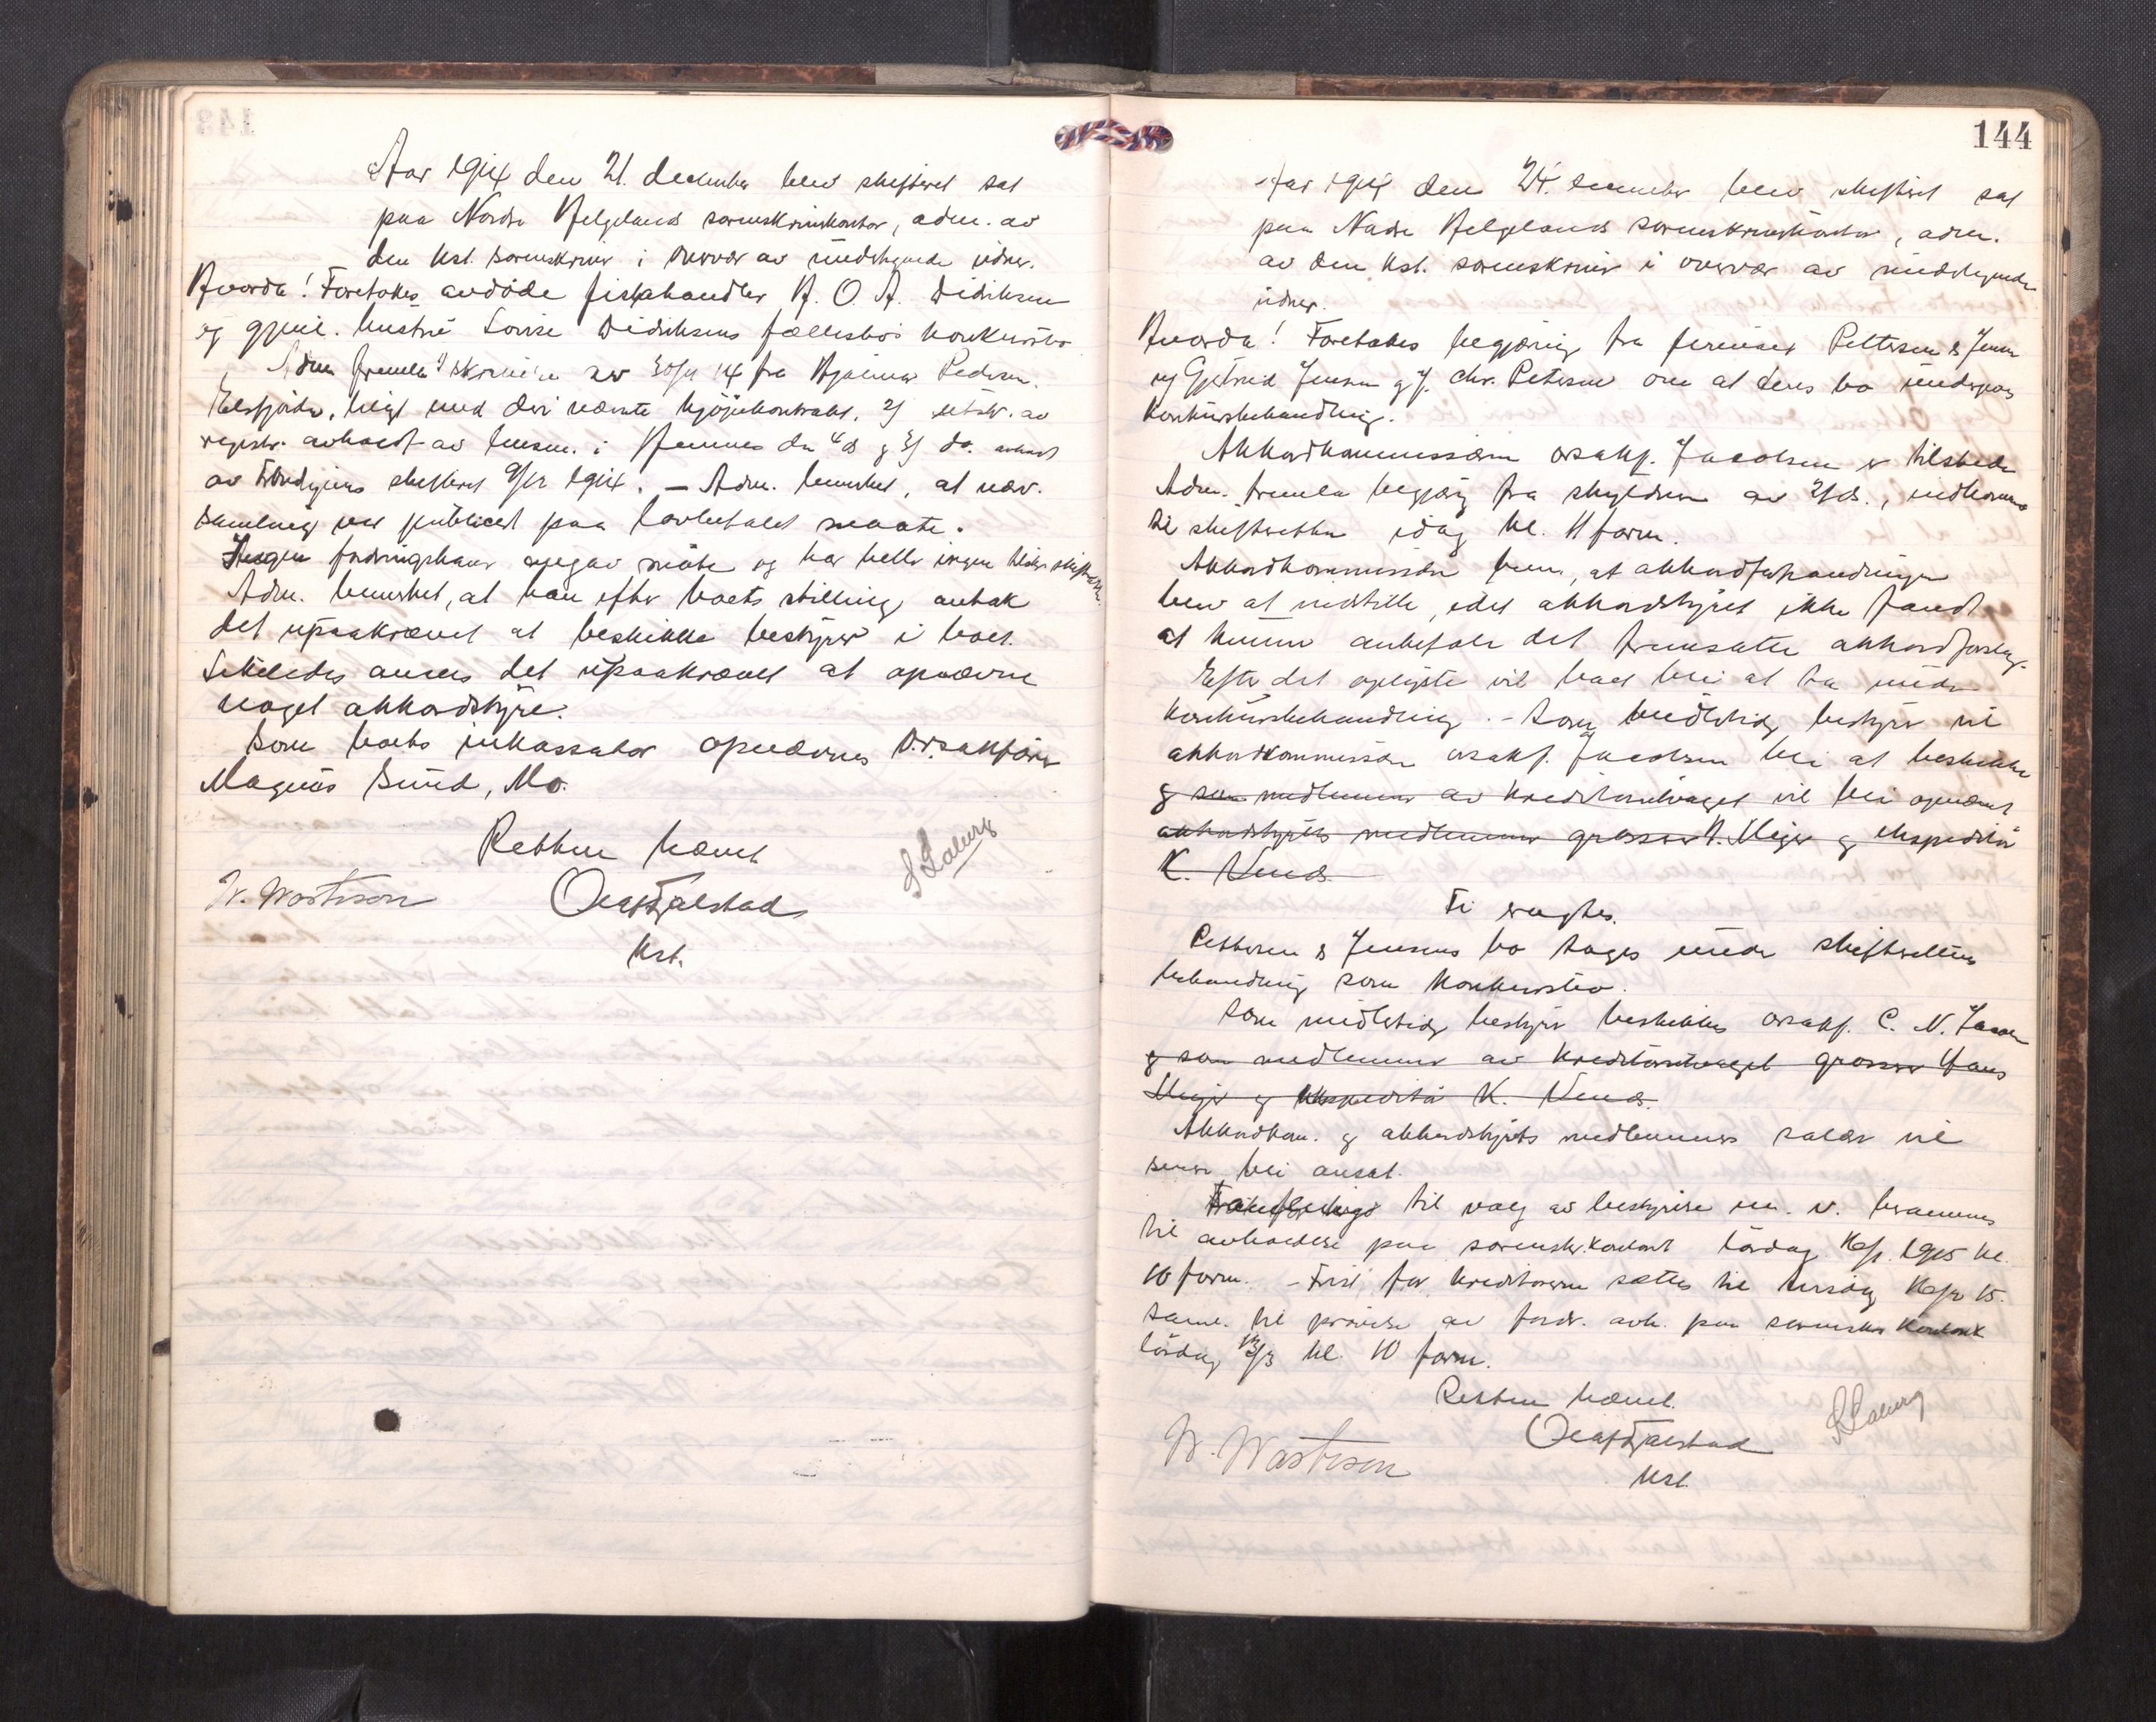 Aar 1914 den 21. december blev skifteret sat
paa Nordre Helgelands sorenskriverkontor, adm. av
den kst. sorenskriver i overvær av undertegnede vidner.
Hvorda! Foretokes avdöde fiskehandler H. O. A. Didriksen
og gjenl. hustru Lovise Didriksens fællesbos konkursbo
Adm. fremla 1) skrivelse av 30/11 14 fra Hjalmar Pedersen
Elsfjorden, bilagt med deri nævnte kjöpekontrakt, 2) utskr. av
registr. avholdt av lensm. i Hemnes den ds og 3) do. avholdt
av skifteret 9/12 1914. – Adm. bemerket, at nær.
samling var publicert paa lovbefalet maate.
Ingen fordringshaver avgav möte og har heller ingen tilskr. skifteretten.
Adm. bemerket, at han efter boets stilling antok
det upaakrævet at beskikke bestyrer i boet.
Likeledes ansees det upaakrævet at opnævne
noget akkordstyre.
Som boets inkassator opnævnes O.r.sakförer
Magnus Sund, Mo.
Retten hævet
W. Wasteson Olaf Fjalstad
Kst.
144
Aar 1914 den 24. december blev skifteret sat
paa Nordre Helgelands sorenskriverkontor, adm.
av den kst. sorenskriver i overvær av undertegnede
vidner.
Hvorda! Foretokes begjæring fra firmaet Pettersen & Jensen
og Gjertrud Jensen og J. Chr. Petersen om at deres bo undergives
konkursbehandling.
Akkordkommissæren orsakf. Jacobsen er tilstede
Adm. fremla begjæring fra skyldneren av ds., indkommet
til skifteretten idag kl. 11 form.
Akkordkommissæren bem., at akkordforhandlingen
blev at indstille, idet akkordstyret ikke fandt
at kunne anbefale det fremsatte akkordforslag.
Efter det oplyste vil boet bli at ta under
konkursbehandling. – Som midlertidig bestyrer vil
akkordkommissær orsakf. Jacobsen bli at beskikke
og som medlemmer av kreditorutvalget vil bli opnævnt
akkordstyrets medlemmer grosserer H. Meyer og ekspeditör
K. Lund.
Ti eragtes.
Pettersen & Jensens bo tages under skifterettens
behandling som konkursbo.
Som midlertidig bestyrer beskikkes orsakf. C. N. Jacobsen
og som medlemmer av kreditorutvalget grosserer Hans
Meyer og ekspeditör K. Lund.
Akkordkom. og akkordstyrets medlemmers salær vil
senere bli ansat.
til valg av bestyrelse m. v. berammes
til avholdelse paa sorenskr.kontoret lördag 16/1 1915 kl.
10 form. – Frist for kreditorerne sættes til tirsdag 16/2 15.
Saml. til prövelse av fordr. avh. paa sorenskr. kontoret
lördag 13/3 kl. 10 form.
Retten hævet.
W. Wasteson Olaf Fjalstad
Kst.